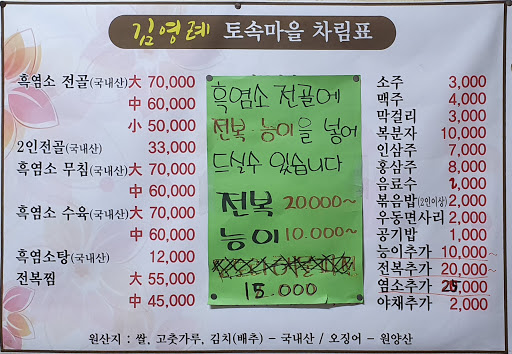 김영례 토속마을 차림표
흑염소 전골(국내산) 大 70,000
中 60,000
小 50,000
2인전골(국내산) 33,000
흑염소 무침(국내산) 大 70,000
中 60,000
흑염소 수육(국내산) 大 70,000
中 60,000
흑염소탕(국내산) 12,000
전복찜 大 55,000
中 45,000
흑염소 전골에
전복 능이을 넣어
드실수 있습니다
전복 20000~
능이 10.000~
15.000
소주 3,000
맥주 4,000
막걸리 3,000
복분자 10,000
인삼주 7,000
홍삼주 8,000
음료수 1,000
볶음밥(2인이상) 2,000
우동면사리 2,000
공기밥 1,000
능이추가 10,000~
전복추가 20,000~
염소추가 25,000
야채추가 2,000
원산지 : 쌀, 고춧가루, 김치(배추) - 국내산 / 오징어 - 원양산